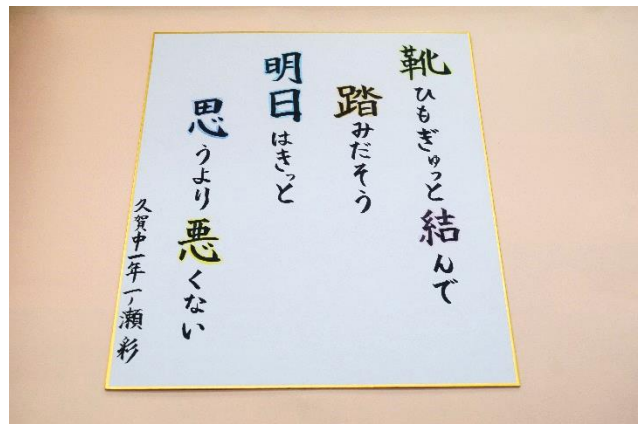 靴ひもぎゅっと結んで
踏みだそう
明日はきっと
思うより悪くない
久賀中一年一ノ瀬彩